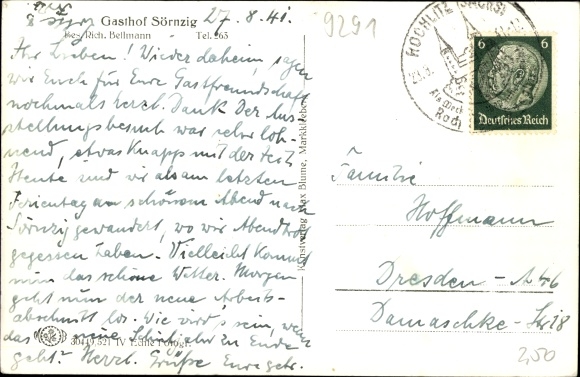 Gasthof Sörnzig 27.8.41.
Bes. Rich. Bellmann Tel. 263
Ihr Lieben! Wieder daheim, sagen
wir Euch für Eure Gastfreundschaft
nochmals herzl. Dank. Der Aus-
stellungsbesuch war sehr loh-
nend, etwas knapp mit der Zeit.
Heute sind wir als am letzten
Ferientag am schönen Abend nach
Sörnzig gewandert, wo wir Abendbrot
gegessen haben. Vielleicht kommt
nun das schöne Wetter. Morgen
geht nun der neue Arbeits-
abschnitt los. Wie wird's sein, wenn
das neue Schuljahr zu Ende
geht? Herzl. Grüße Eure
30449.521 IV Echte Fotogr.
Kunstverlag Max Blume, Markkleeberg
9291
ROCHLITZ (SACHS)
6 6
Deutsches Reich
Familie
Hoffmann
Dresden - A 46
Damaschke-Str 28
2,50